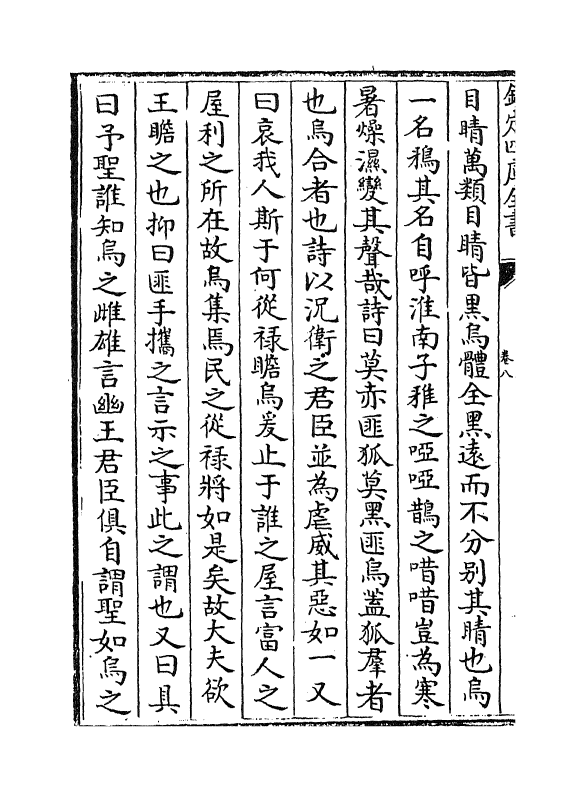 欽定四庫全書
卷八
目睛萬類目睛皆黒烏體全黒逺而不分别其睛也烏
一名鵶其名自呼淮南子稚之啞啞鵲之唶唶豈為寒
暑燥濕變其聲哉詩曰莫赤匪狐莫黒匪烏蓋狐羣者
也烏合者也詩以況衛之君臣並為虐威其惡如一又
曰哀我人斯于何從禄瞻烏爰止于誰之屋言富人之
屋利之所在故烏集焉民之從禄將如是矣故大夫欲
王瞻之也抑曰匪手攜之言示之事此之謂也又曰具
曰予聖誰知烏之雌雄言幽王君臣俱自謂聖如烏之